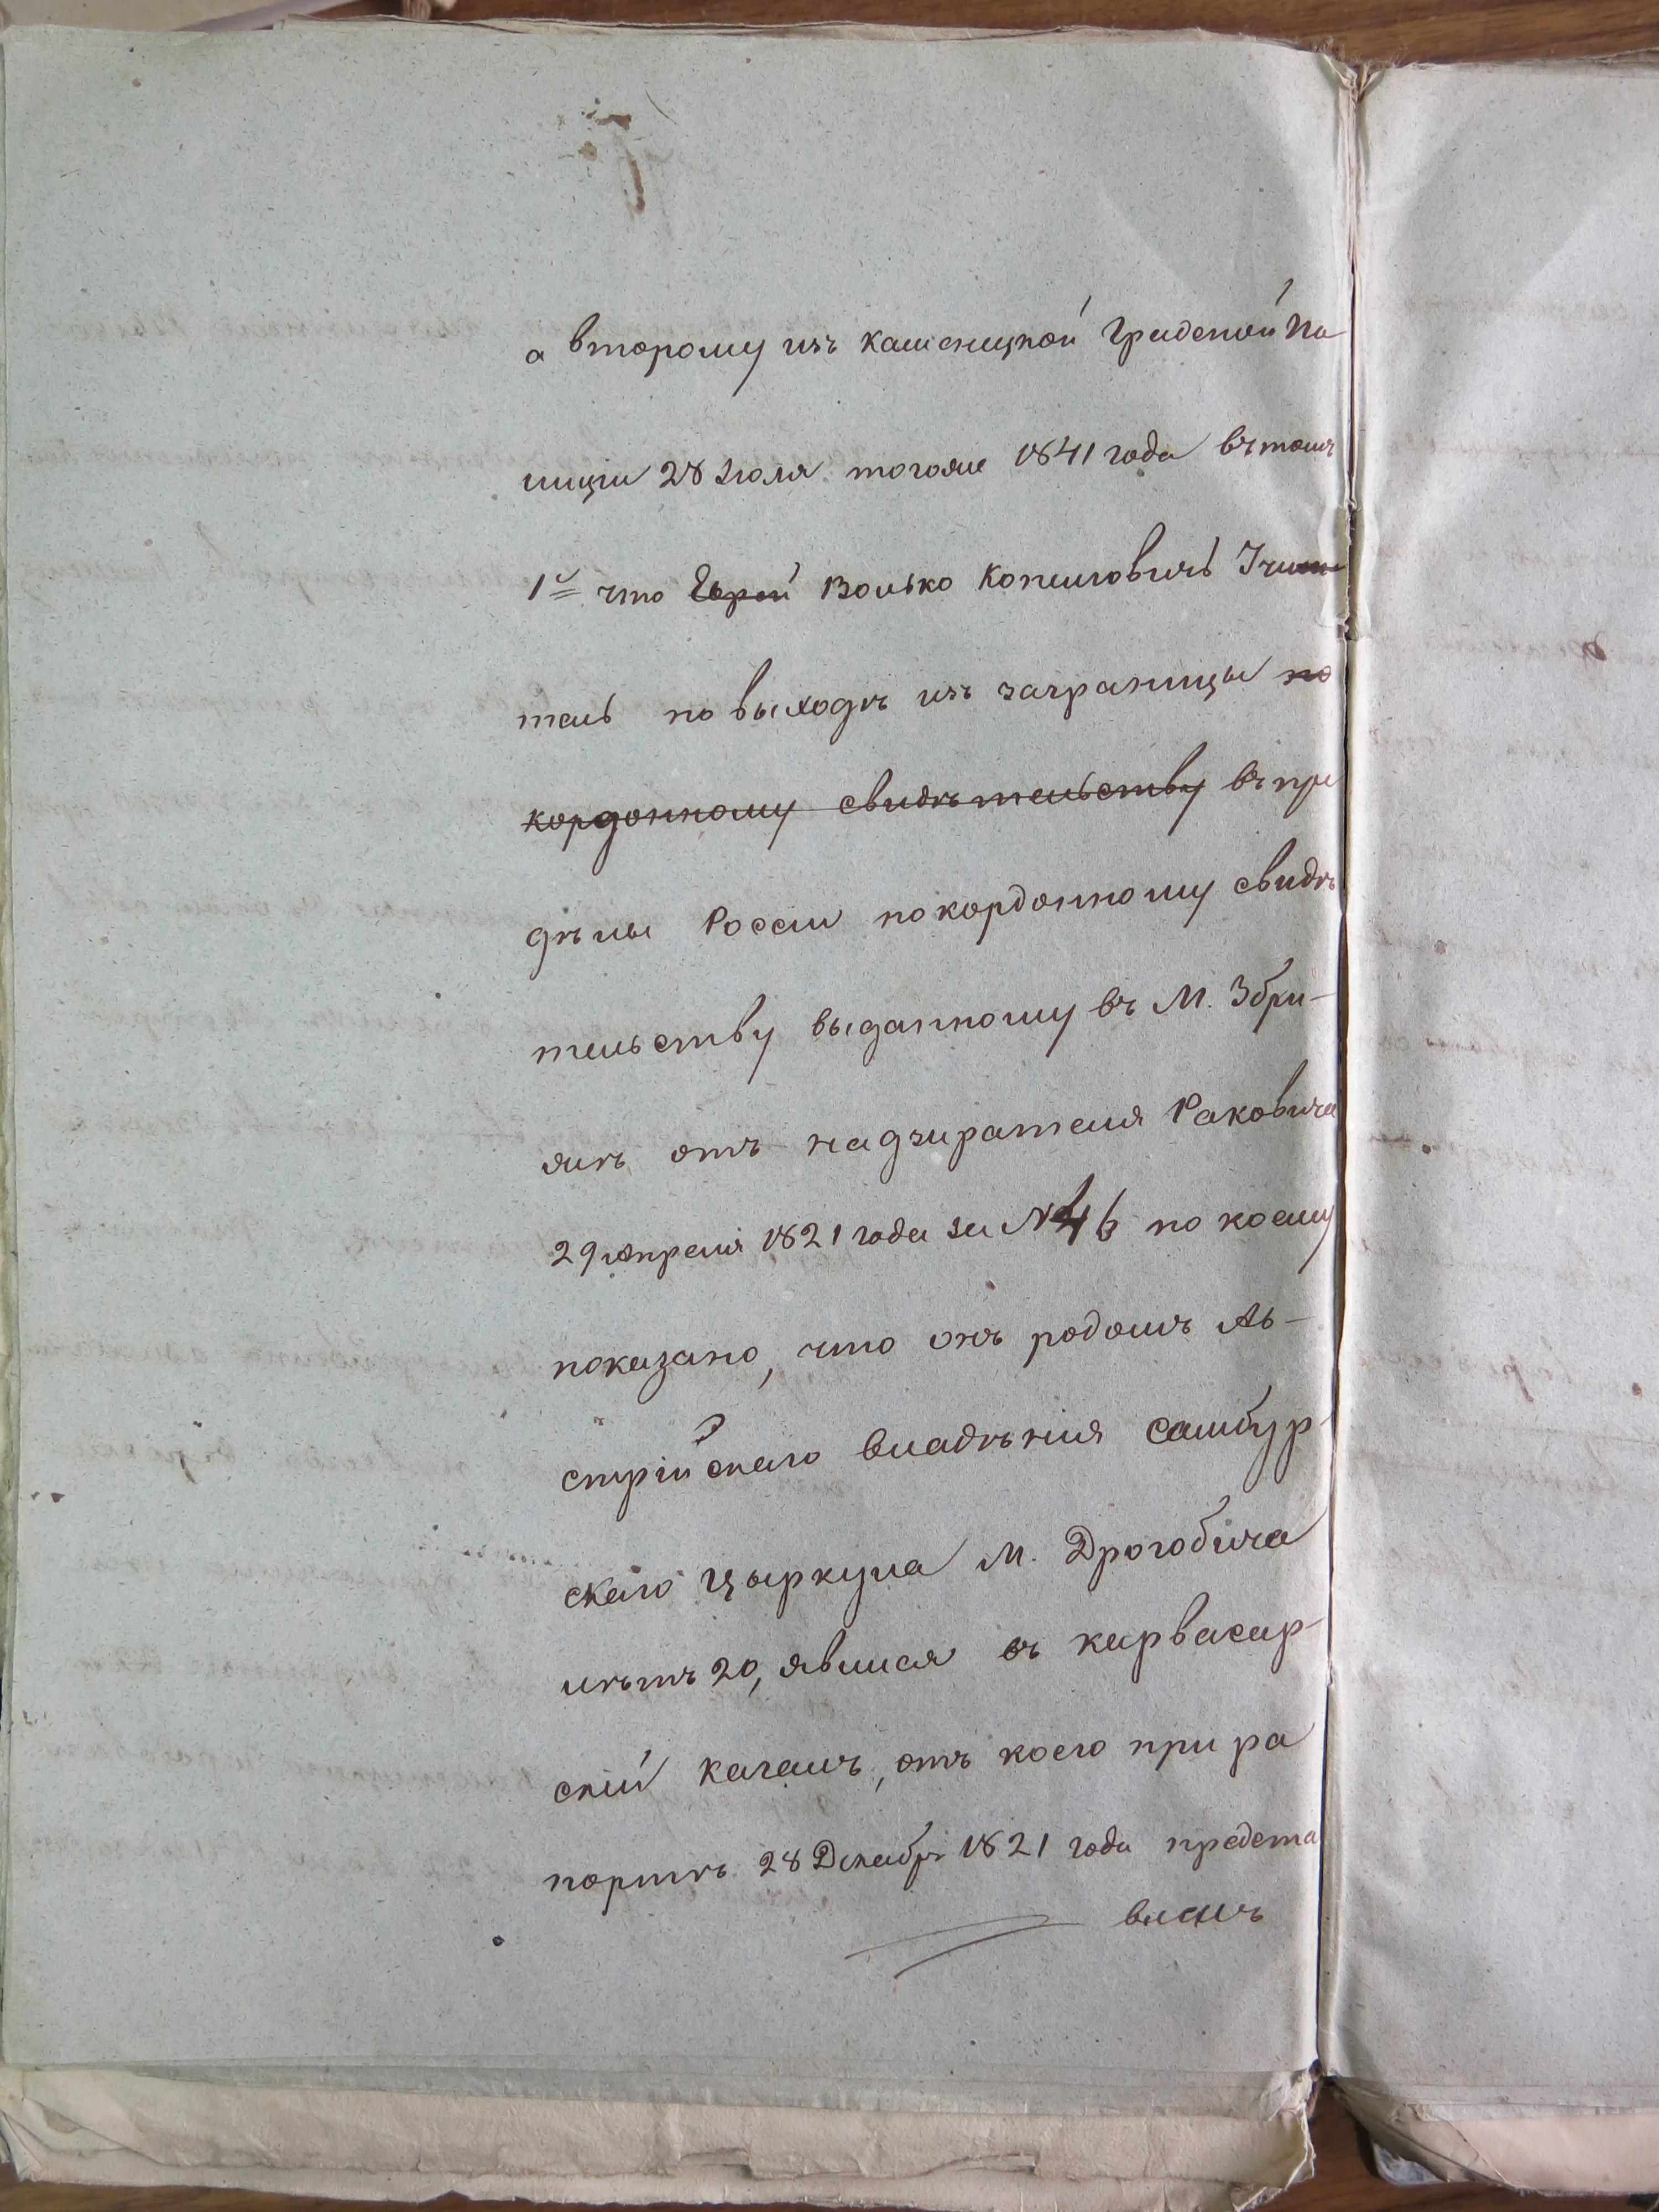 а второму изъ каменецкой Градской По
лиціи 28 Іюля тогоже 1841 года въ томъ
1е что Еврей Волько Копиловичъ Учи
тель по выходѣ изъ заграницы по
кордонному свидѣтельству въ пре
дѣлы Россіи по кордонному свидѣ
тельству выданному въ М. Збри-
жѣ отъ надзирателя Раковича
29 апреля 1821 года за № 46 по коему
показано, что онъ родомъ Ав-
стрійскаго владѣнія Самбур-
скаго Цыркула М. Дрогобича
лѣтъ 20, явился въ карвасар-
скій кагалъ, отъ коего при ра
портѣ 28 Декабря 1821 года предста
вленъ